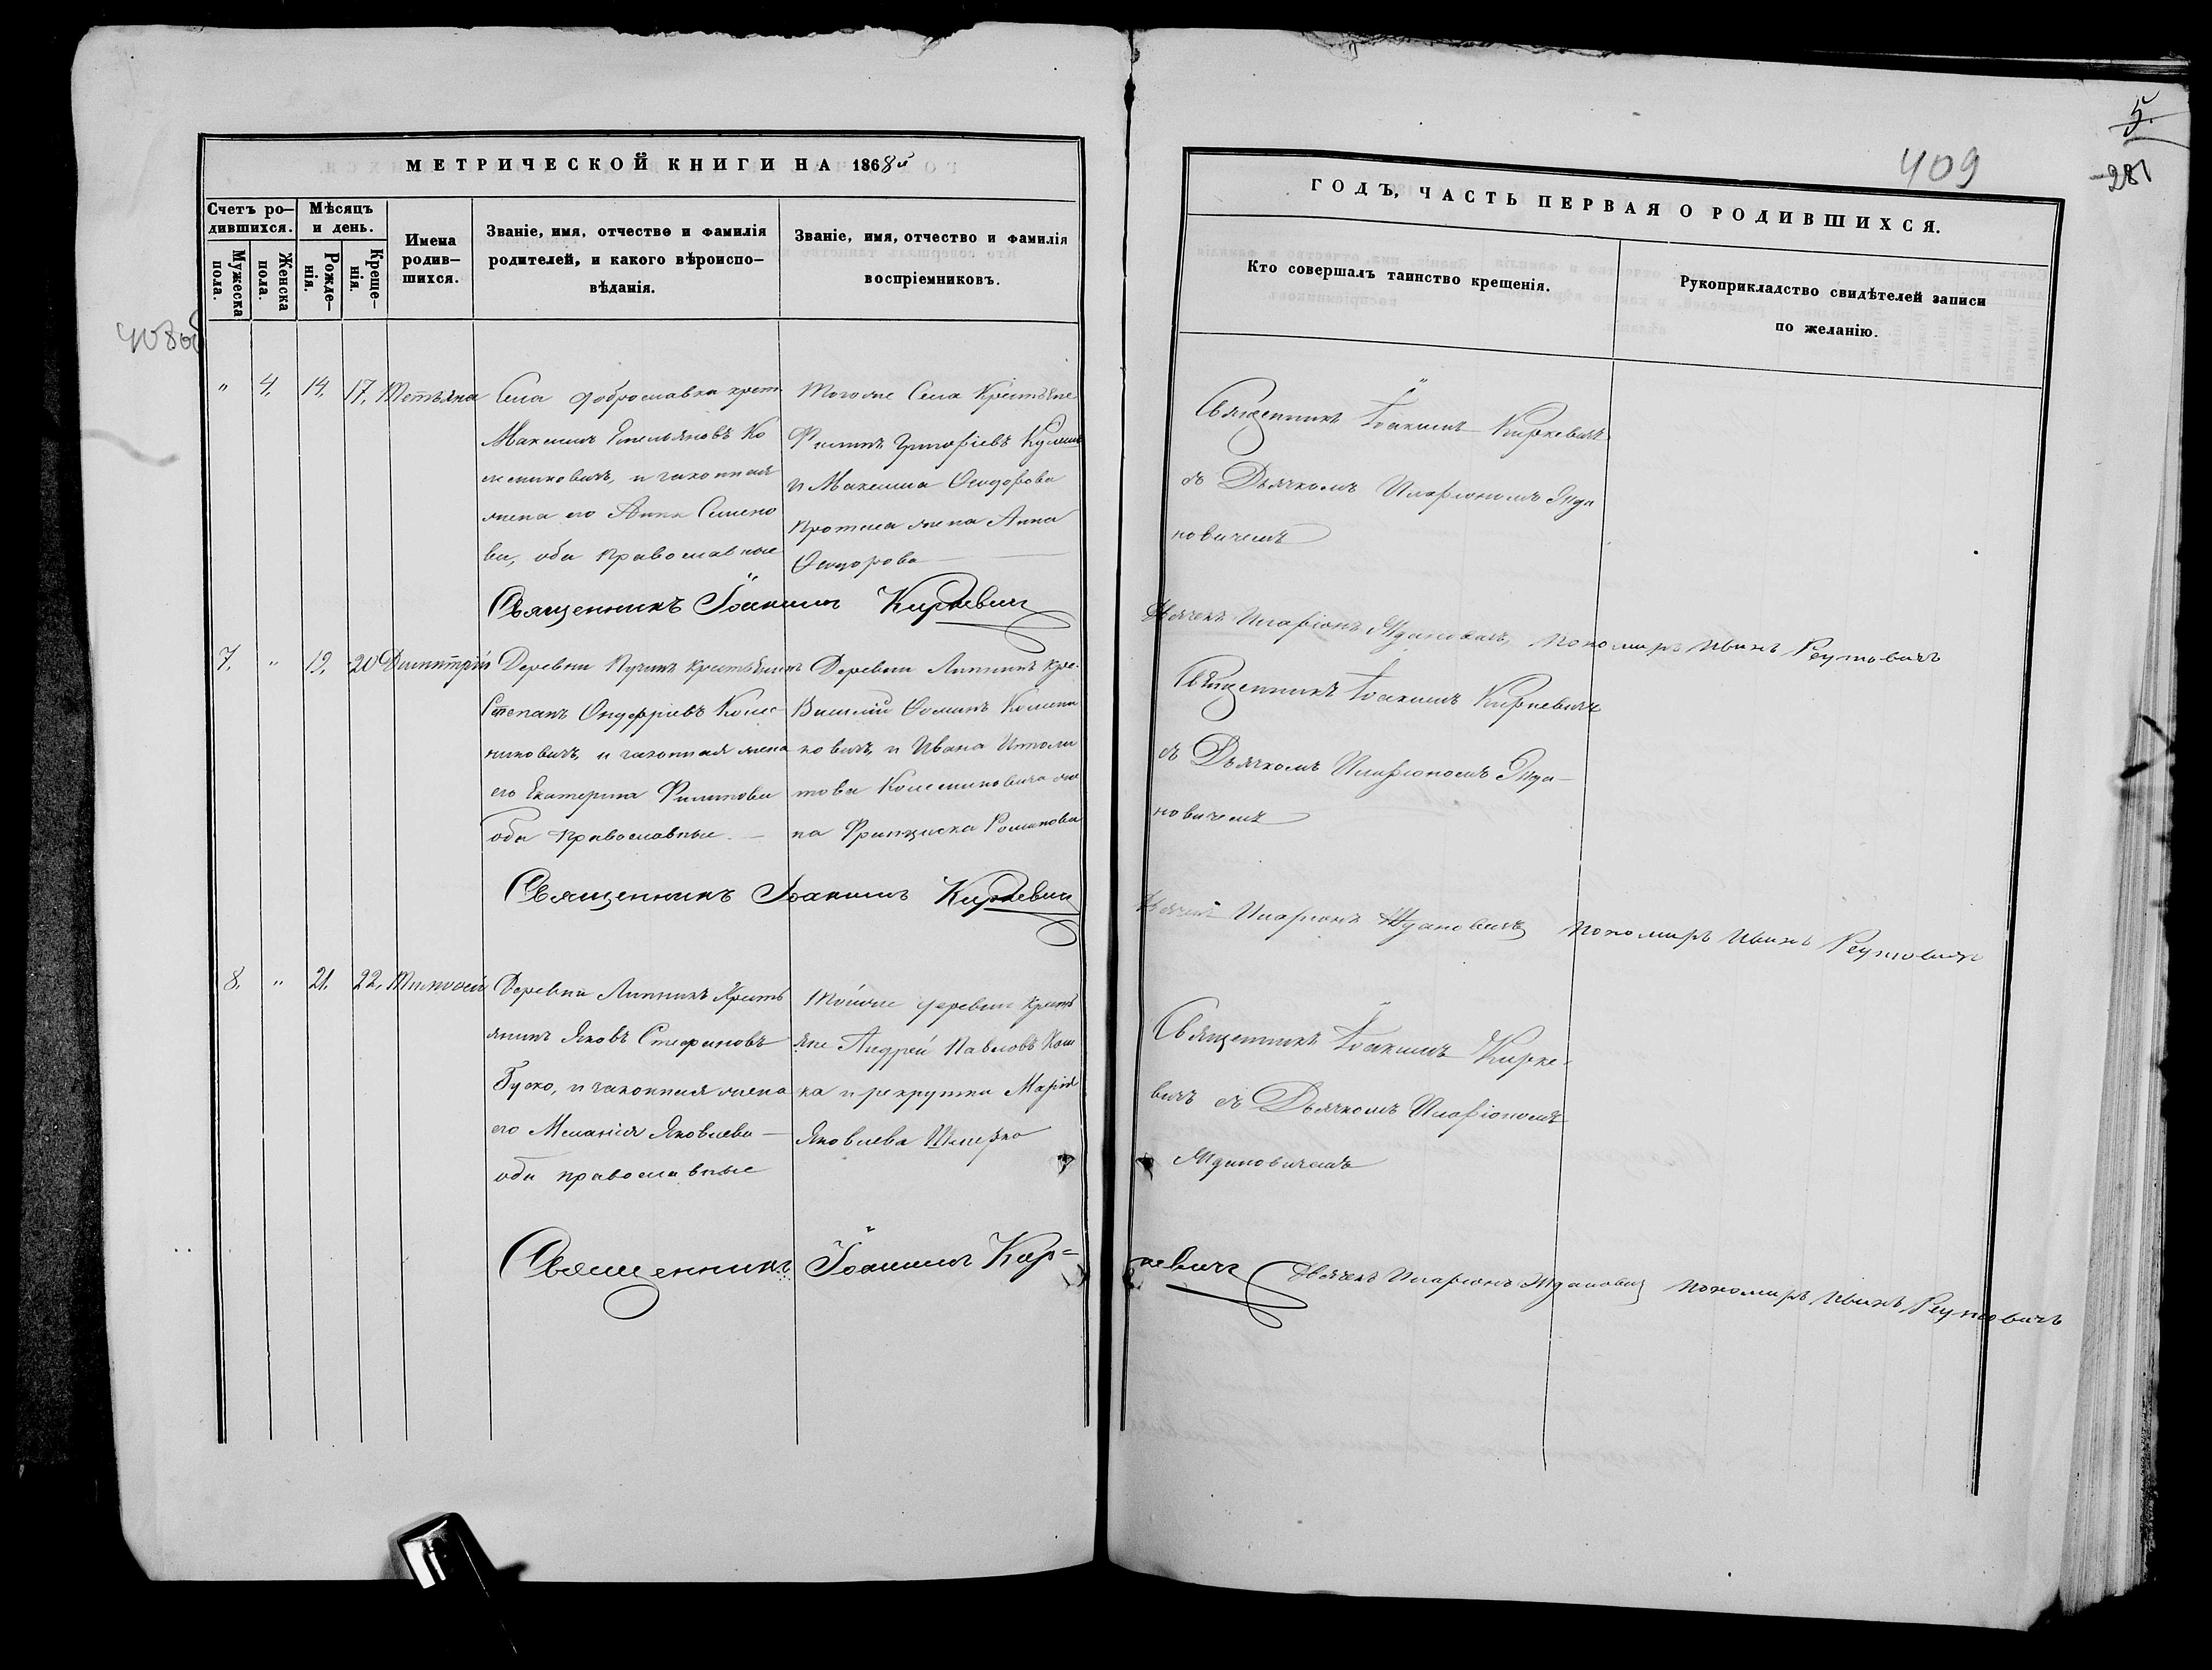 МЕТРИЧЕСКОЙ КНИГИ НА 1868й
Счетъ ро-
дившихся.
Мѣсяцъ
и день.
Мужеска
пола.
Женска
пола.
Рожде-
нія.
Креще-
нія.
Имена
родив-
шихся.
Званіе, имя, отчество и фамилія
родителей, и какого вѣроиспо-
вѣданія.
Званіе, имя, отчество и фамилія
воспріемниковъ.
408об
" 4, 14, 17, Татьяна
Села Доброславка крест
Максимъ Емельяновъ Ко
лесниковичъ, и законная
жена его Анна Симено
ва, оба православные
Тогоже Села Крестьяне
Филипъ Григоріевъ
и Максима Ѳеодорова
жена Анна
Ѳеодорова
Священникъ Іоакимъ Киркевичъ
7. " 19, 20 Димитрій
Деревни Пучинъ Крестьянинъ
Степанъ Онуфріевъ Колес
никовичъ, и законная жена
его Екатерина Филипова
оба православные
Деревни Липникъ кре-
Василій Ѳоминъ Колесни
ковичъ, и Ивана Иполи
това Колесниковича же
на Францишка Романова
Священникъ Іоакимъ Киркевичъ
8. " 21, 22, Тимоѳей
Деревни Липникъ Кресть
янинъ Яковъ Стефановъ
Буско, и законная жена
его Меланія Яковлева
оба православные
Тойже деревни кресть
яне Андрей Павловъ Кош
ка и рекрутка Марія
Яковлева Шмирко
Священникъ Іоакимъ Кир=
409
5.
281
ГОДЪ, ЧАСТЬ ПЕРВАЯ О РОДИВШИХСЯ.
Кто совершалъ таинство крещенія.
Рукоприкладство свидѣтелей записи
по желанію.
Священникъ Іоакимъ Киркевичъ
съ Дьячкомъ Иларіономъ Жда
новичемъ
Дьячекъ Иларіонъ Ждановичъ, Пономаръ Иванъ Реутовичъ
Священникъ Іоакимъ Киркевичъ
съ Дьячкомъ Иларіономъ Жда-
новичемъ
Дьячекъ Иларіонъ Ждановичъ Пономаръ Иванъ Реутовичъ
Священникъ Іоакимъ Кирке-
вичъ съ Дьячкомъ Иларіономъ
Ждановичемъ
кевичъ Дьячекъ Иларіонъ Ждановичъ Пономаръ Иванъ Реутовичъ